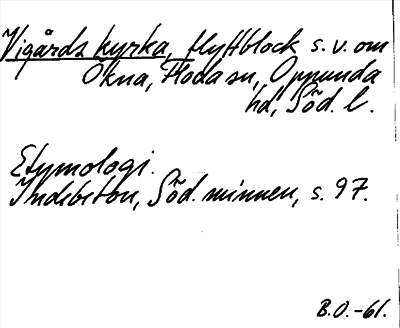 Vigårds kyrka, flyttblock s.v. om
Ökna, Floda sn, Oppunda
hd, Söd. l.
Etymologi.
Indebetou, Söd. minnen, s. 97.
B.O.-61.